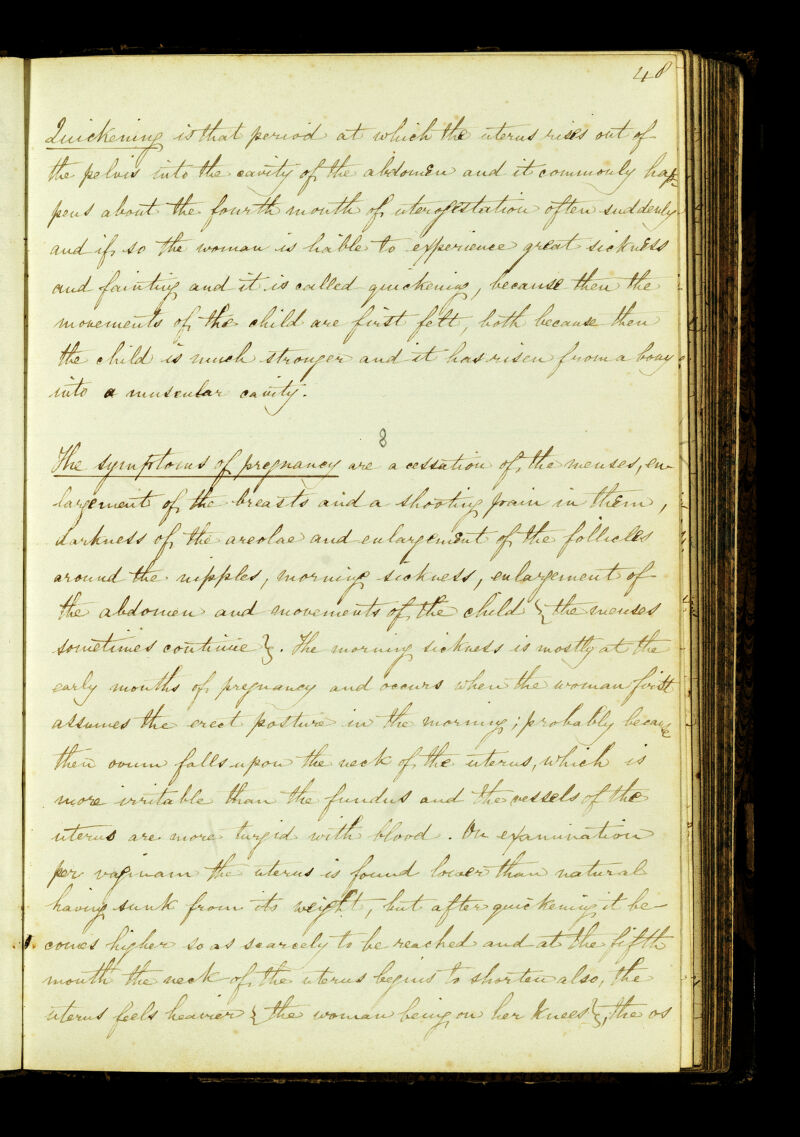 48
Quickening is that period at which the uterus rises out of
the pelvis into the cavity of the abdomen and it commonly hap-
pens about the fourth month of uterogestation often suddenly
and if so the woman is liable to experience great sickness
and fainting and it is called quickening, because then the
movements of the child are first felt, both because then
the child is much stronger and it has risen from a bony
into a muscular cavity.
8
The symptoms of pregnancy are a cessation of the menses, en-
largement of the breasts and a shooting pain in them,
darkness of the areolae and enlargement of the follicles
around the nipples, morning sickness, enlargement of
the abdomen and movements of the child {the menses
sometimes continue}. The morning sickness is mostly at the
early months of pregnancy and occurs when the woman first
assumes the erect posture in the morning; probably because
then ovum falls upon the neck of the uterus, which is
more irritable than the fundus and the vessels of the
uterus are more turgid with blood. On examination
per vaginam the uterus is found lower than natural
having sunk from its weight, but after quickening it be-
comes higher so as scarcely to be reached and at the fifth
month the neck of the uterus begins to shorten also, the
uterus feels heavier {the woman being on her knees}, the os